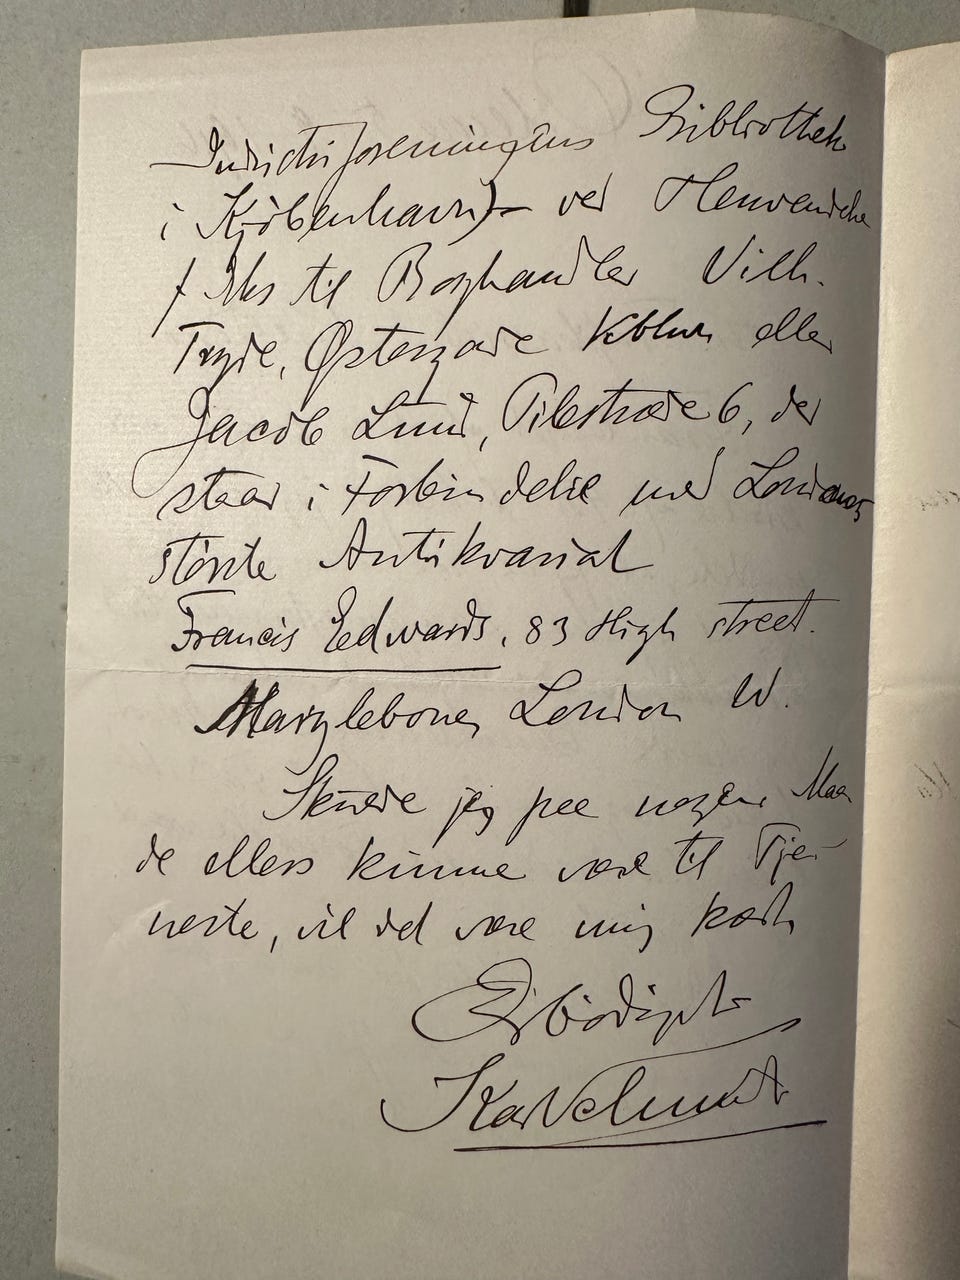 Industriforeningens Bibliothek
i København) – ved Henvendelse
f Eks til Boghandler Vilh.
Tryde, Østergade Kbhvn eller
Jacob Lund, Pilestræde 6, der
staar i Forbindelse med Londons
største Antikvariat
Francis Edwards, 83 High street.
Marylebone, London W.
Skulde jeg paa nogen Maa
de ellers kunne være til Tje-
neste, vil det være mig kært
Ærbødigst
Karl